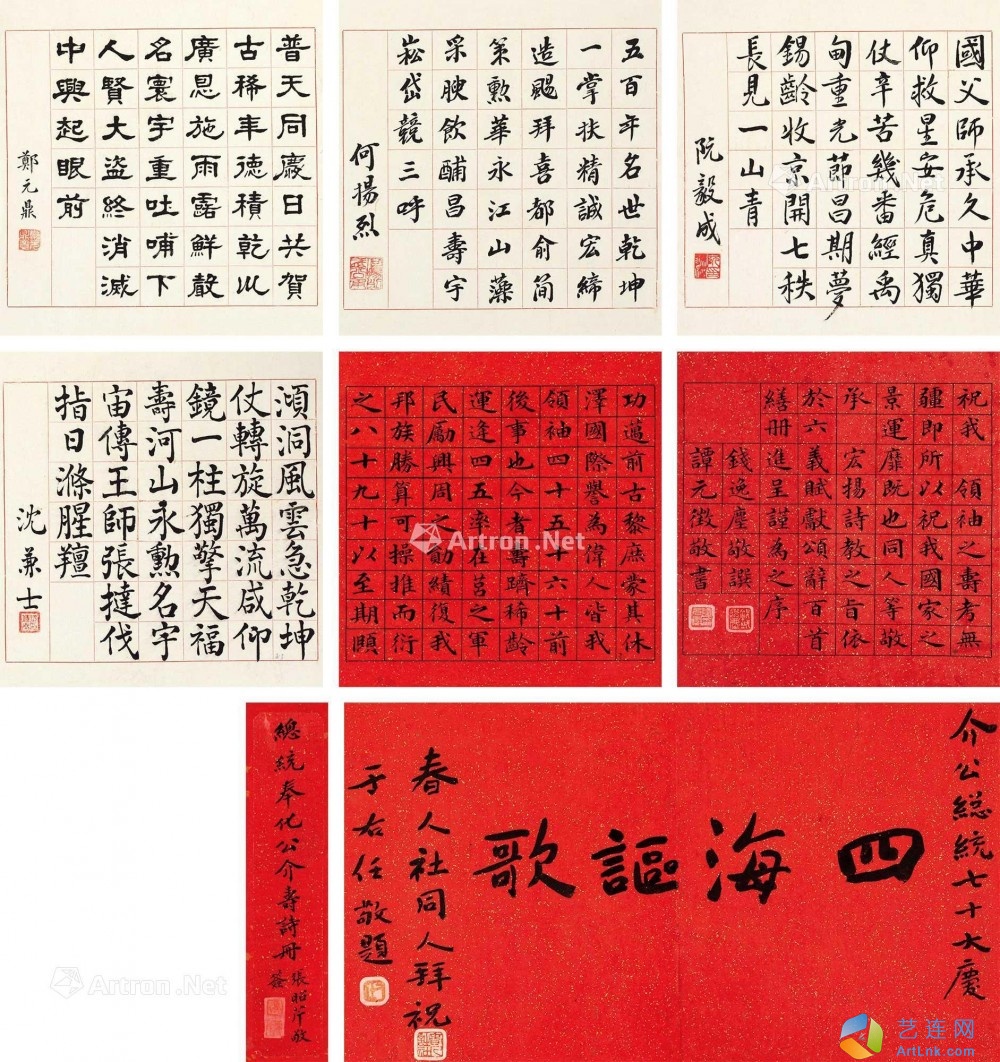 普天同慶日共賀
古稀年德積乾巛
廣恩施雨露鮮聲
名寰宇重吐哺下
人賢大盜終消滅
中興起眼前
鄭元鼎
五百年名世乾坤
一掌扶精誠宏締
造颺拜喜都俞簡
策勲華永江山藻
采腴飲酺昌壽宇
崧岱競三呼
何揚烈
國父師承久中華
仰救星安危真獨
仗辛苦幾番經禹
甸重光節昌期夢
錫齡收京開七秩
長見一山青
阮毅成
澒洞風雲急乾坤
仗轉旋萬流咸仰
鏡一柱獨擎天福
壽河山永勲名宇
宙傳王師張撻伐
指日滌腥羶
沈兼士
功邁前古黎庶蒙其休
澤國際譽為偉人皆我
領袖四十五十六十前
後事也今者壽躋稀齡
運逢四五率在莒之軍
民勵興周之勛績復我
邦族勝算可操推而衍
之八十九十以至期頤
祝我 領袖之壽考無
疆即所以祝我國家之
景運靡既也同人等敬
承宏揚詩教之旨依
於六義賦獻頌辭百首
繕册進呈謹為之序
錢逸塵敬譔
譚元徵敬書
總統奉化公介壽詩册
張昭芹敬
簽
介公總統七十大慶
四海謳歌
春人社同人拜祝
于右任敬題
Artron.Net
Artron.Net
Artron.Net
Artron.Net
艺连网
ArtLnk.Com